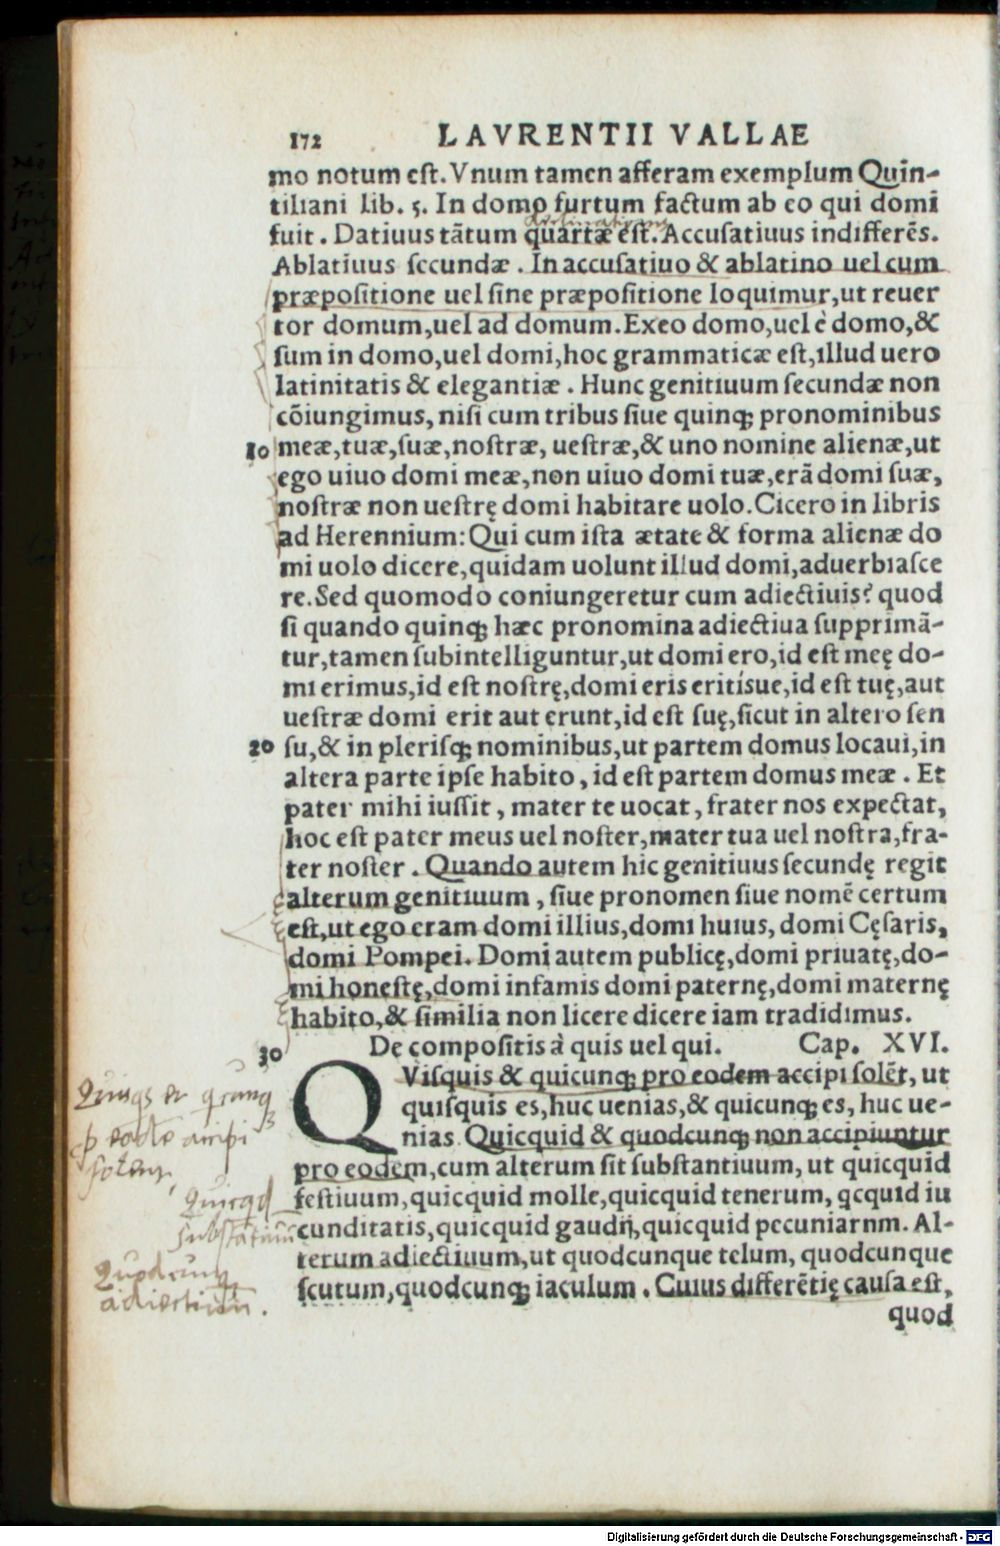 172 LAVRENTII VALLAE
mo notum est. Vnum tamen afferam exemplum Quin-
tiliani lib. 5. In domo furtum factum ab eo qui domi
fuit. Datiuus tātum quartæ est. Accusatiuus indifferēs.
Ablatiuus secundæ. In accusatiuo & ablatino uel cum
præpositione uel sine præpositione loquimur, ut reuer
tor domum, uel ad domum. Exeo domo, uel è domo, &
sum in domo, uel domi, hoc grammaticæ est, illud uero
latinitatis & elegantiæ. Hunc genitiuum secundæ non
cōiungimus, nisi cum tribus siue quinq; pronominibus
10 meæ, tuæ, suæ, nostræ, uestræ, & uno nomine alienæ, ut
ego uiuo domi meæ, non uiuo domi tuæ, erā domi suæ,
nostræ non uestrę domi habitare uolo. Cicero in libris
ad Herennium: Qui cum ista ætate & forma alienæ do
mi uolo dicere, quidam uolunt illud domi, aduerbiasce
re. Sed quomodo coniungeretur cum adiectiuis? quod
si quando quinq; hæc pronomina adiectiua supprimā-
tur, tamen subintelliguntur, ut domi ero, id est meę do-
mi erimus, id est nostrę, domi eris eritísue, id est tuę, aut
uestræ domi erit aut erunt, id est suę, sicut in altero sen
20 su, & in plerisq; nominibus, ut partem domus locaui, in
altera parte ipse habito, id est partem domus meæ. Et
pater mihi iussit, mater te uocat, frater nos expectat,
hoc est pater meus uel noster, mater tua uel nostra, fra-
ter noster. Quando autem hic genitiuus secundę regit
alterum genitiuum, siue pronomen siue nomē certum
est, ut ego eram domi illius, domi huius, domi Cęsaris,
domi Pompei. Domi autem publicę, domi priuatę, do-
mi honestę, domi infamis domi paternę, domi maternę
habito, & similia non licere dicere iam tradidimus.
30 De compositis à quis uel qui. Cap. XVI.
QVisquis & quicunq; pro eodem accipi solēt, ut
quisquis es, huc uenias, & quicunq; es, huc ue-
nias. Quicquid & quodcunq; non accipiuntur
pro eodem, cum alterum sit substantiuum, ut quicquid
festiuum, quicquid molle, quicquid tenerum, qcquid iu
cunditatis, quicquid gaudij, quicquid pecuniarnm. Al-
terum adiectiuum, ut quodcunque telum, quodcunque
scutum, quodcunq; iaculum. Cuius differētię causa est,
quod
Quodcunq
adiectiuū.
Digitalisierung gefördert durch die Deutsche Forschungsgemeinschaft - DFG